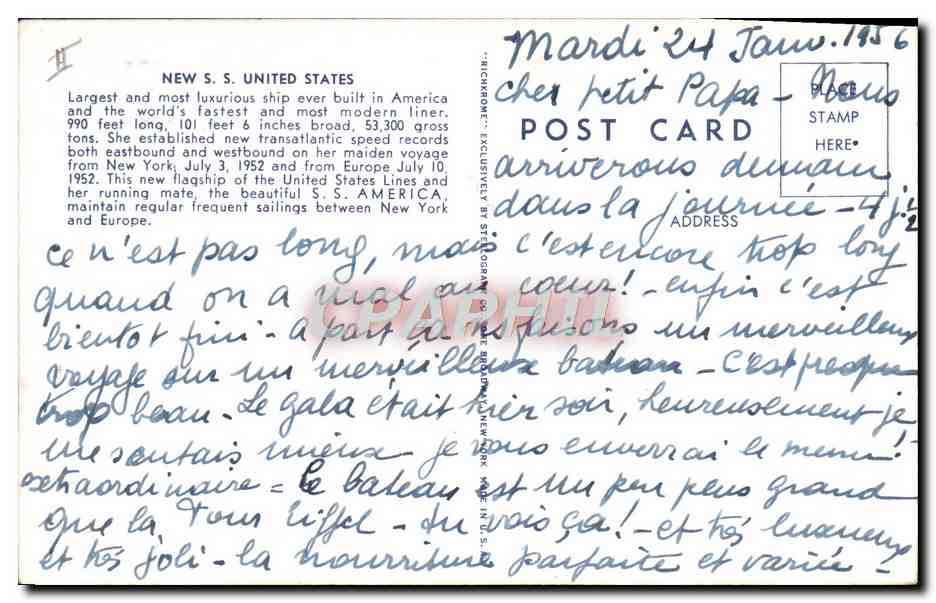 II
NEW S. S. UNITED STATES
Largest and most luxurious ship ever built in America
and the world's fastest and most modern liner.
990 feet long, 101 feet 6 inches broad, 53,300 gross
tons. She established new transatlantic speed records
both eastbound and westbound on her maiden voyage
from New York; July 3, 1952 and from Europe July 10,
1952. This new flagship of the United States Lines and
her running mate, the beautiful S. S. AMERICA,
maintain regular frequent sailings between New York
and Europe.
"RICHKROME" EXCLUSIVELY BY STEELOGRAPH CO. BROADWAY, NEW YORK MADE IN U.S.A.
POST CARD
ADDRESS
PLACE
STAMP
HERE
Mardi 24 Janv. 1956
cher petit Papa - Nous
arriverons demain
dans la journée - 4 j. 1/2
ce n'est pas long, mais c'est encore trop long
quand on a mal au cœur! - enfin c'est
bientot fini - a part ça ns faisons un merveilleux
voyage sur un merveilleux bateau - C'est presque
trop beau - Le gala était hier soir, heureusement je
me sentais mieux - je vous enverrai le menu!
extraordinaire = Le bateau est un peu plus grand
que la Tour Eiffel - tu vois ça! - et très luxueux
et très joli - la nourriture parfaite et variée -
CPAPHIL